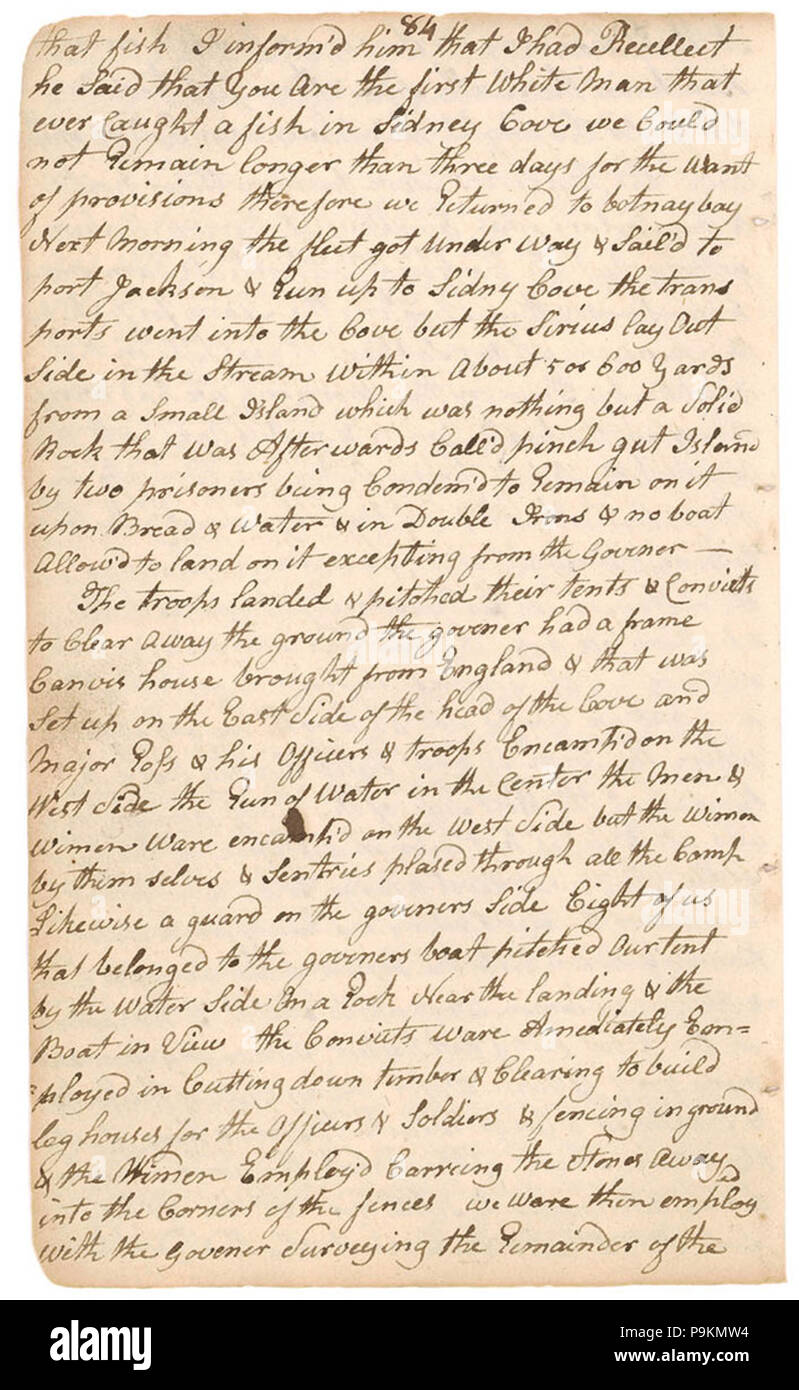 84
that fish I inform'd him that I had Recellect
he Said that You Are the first White Man that
ever Caught a fish in Sidney Cove we Could
not Remain longer than three days for the Want
of provisions therefore we Returned to botnay bay
Next Morning the fleet got Under Way & Sail'd to
port Jackson & Run up to Sidny Cove the trans
ports went into the Cove but the Sirius lay Out
Side in the Stream Within About 5 or 600 Yards
from a Small Island which was nothing but a Solid
Rock that Was Afterwards Call'd pinch gut Island
by two prisoners being Condem'd to Remain on it
upon Bread & Water & in Double Irons & no boat
Allow'd to land on it excepting from the Govener —
The troops landed & pitched their tents & Convicts
to Clear Away the ground the govener had a frame
Canvis house brought from England & that was
Set up on the East Side of the head of the Cove and
Major Ross & his Officers & troops Encamt'd on the
West Side the Run of Water in the Center the Men &
Wimen Ware encamt'd on the West Side but the Wimen
by them selves & Sentries plased through all the Camp
Likewise a guard on the goveners Side Eight of us
that belonged to the goveners boat pitched Our tent
by the Water Side On a Rock Near the landing & the
Boat in View the Convicts Ware Amediately Em=
=ployed in Cutting down timber & Clearing to build
log houses for the Officers & Soldiers & fencing in ground
& the Wimen Employ'd Carreing the Stones Away
into the Corners of the fences we Ware then employ'd
With the Govener Surveying the Remainder of the
alamy
alamy
Image ID: P9KMW4
www.alamy.com